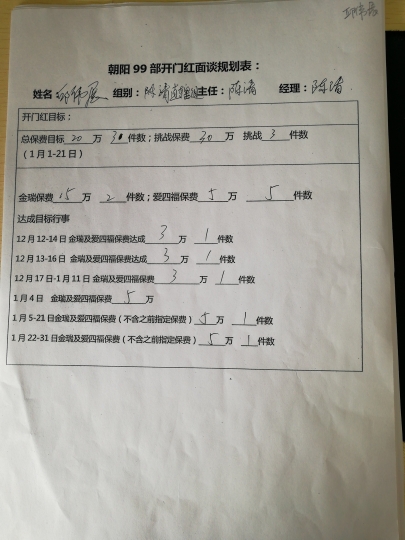 朝阳 99 部开门红面谈规划表：
姓名 组别： 陈清直辖组 主任： 陈清 经理： 陈清
开门红目标：
总保费目标 20 万 3 件数；挑战保费 30 万 挑战 3 件数
（1月1-21日）
金瑞保费 15 万 2 件数；爱四福保费 5 万 5 件数
达成目标行事
12月12-14日 金瑞及爱四福保费达成 3 万 1 件数
12月13-16日 金瑞及爱四福保费达成 3 万 1 件数
12月17日-1月11日 金瑞及爱四福保费 3 万 1 件数
1月4日 金瑞及爱四福保费 5 万
1月5-21日金瑞及爱四福保费（不含之前指定保费） 5 万 1 件数
1月22-31日金瑞及爱四福保费（不含之前指定保费） 5 万 1 件数